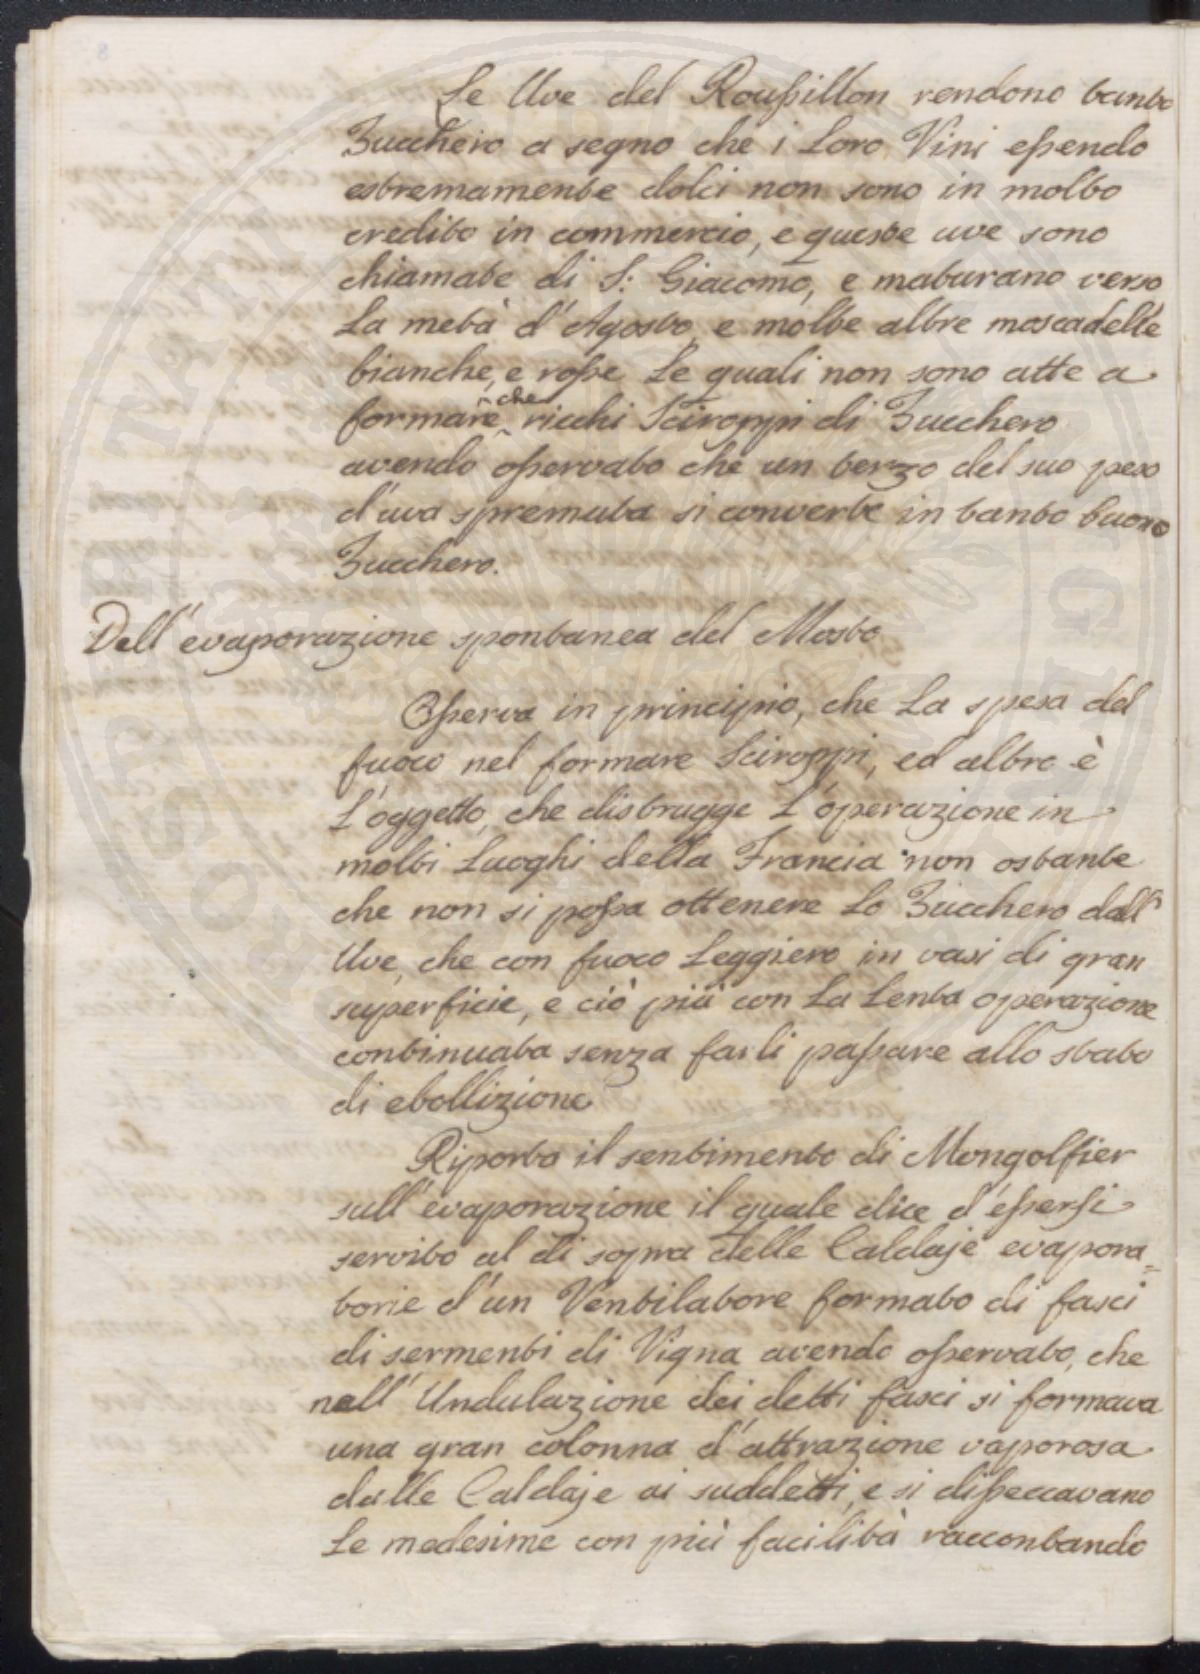 8
Le Uve del Roussillon rendono tanto
Zucchero a segno che i Loro Vini essendo
estremamente dolci non sono in molto
credito in commercio, e queste uve sono
chiamate di S: Giacomo, e maturano verso
La metà d'Agosto, e molte altre moscadelle
bianche, e rosse Le quali non sono atte a
che
formare ricchi Sciroppi di Zucchero
avendo osservato che un terzo del suo peso
d'uva spremuta si converte in tanto buono
Zucchero.
Dell'evaporazione spontanea del Mosto
Osserva in principio, che La spesa del
fuoco nel formare Sciroppi, ed altro è
L'oggetto, che distrugge L'operazione in
molti Luoghi della Francia non ostante
che non si possa ottenere Lo Zucchero dall'
Uve, che con fuoco Leggiero in vasi di gran
superficie, e ciò più con La Lenta operazione
continuata senza farli passare allo stato
di ebollizione
Riporto il sentimento di Mongolfier
sull'evaporazione il quale dice d'essersi
servito al di sopra delle Caldaje evapora=
torie d'un Ventilatore formato di fasci
di sermenti di Vigna avendo osservato, che
nell'Undulazione dei detti fasci si formava
una gran colonna d'attrazione vaporosa
dalle Caldaje ai suddetti, e si disseccavano
Le medesime con più facilità raccontando